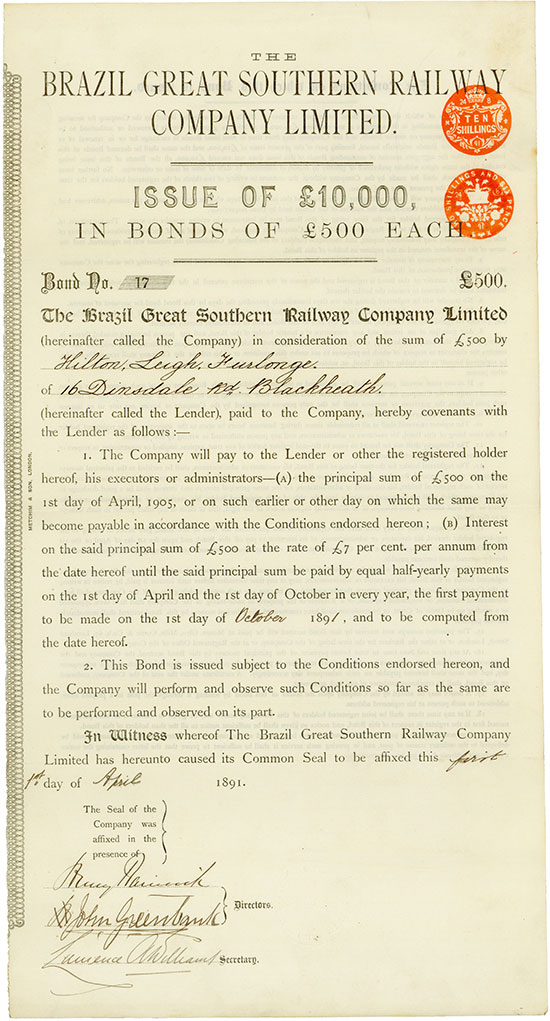 THE
BRAZIL GREAT SOUTHERN RAILWAY
COMPANY LIMITED.
TEN
SHILLINGS
ISSUE OF £10,000,
IN BONDS OF £500 EACH.
Bond No. 17 £500.
The Brazil Great Southern Railway Company Limited
(hereinafter called the Company) in consideration of the sum of £500 by
Hilton, Leigh, Furlonge.
of 16 Dinsdale Rd. Blackheath.
(hereinafter called the Lender), paid to the Company, hereby covenants with
the Lender as follows :—
1. The Company will pay to the Lender or other the registered holder
hereof, his executors or administrators—(A) the principal sum of £500 on the
1st day of April, 1905, or on such earlier or other day on which the same may
become payable in accordance with the Conditions endorsed hereon ; (B) Interest
on the said principal sum of £500 at the rate of £7 per cent. per annum from
the date hereof until the said principal sum be paid by equal half-yearly payments
on the 1st day of April and the 1st day of October in every year, the first payment
to be made on the 1st day of October 1891, and to be computed from
the date hereof.
2. This Bond is issued subject to the Conditions endorsed hereon, and
the Company will perform and observe such Conditions so far as the same are
to be performed and observed on its part.
In Witness whereof The Brazil Great Southern Railway Company
Limited has hereunto caused its Common Seal to be affixed this first
1st day of April 1891.
The Seal of the
Company was
affixed in the
presence of
John Greenbank
Directors.
Williams Secretary.
METCHIM & SON, LONDON.